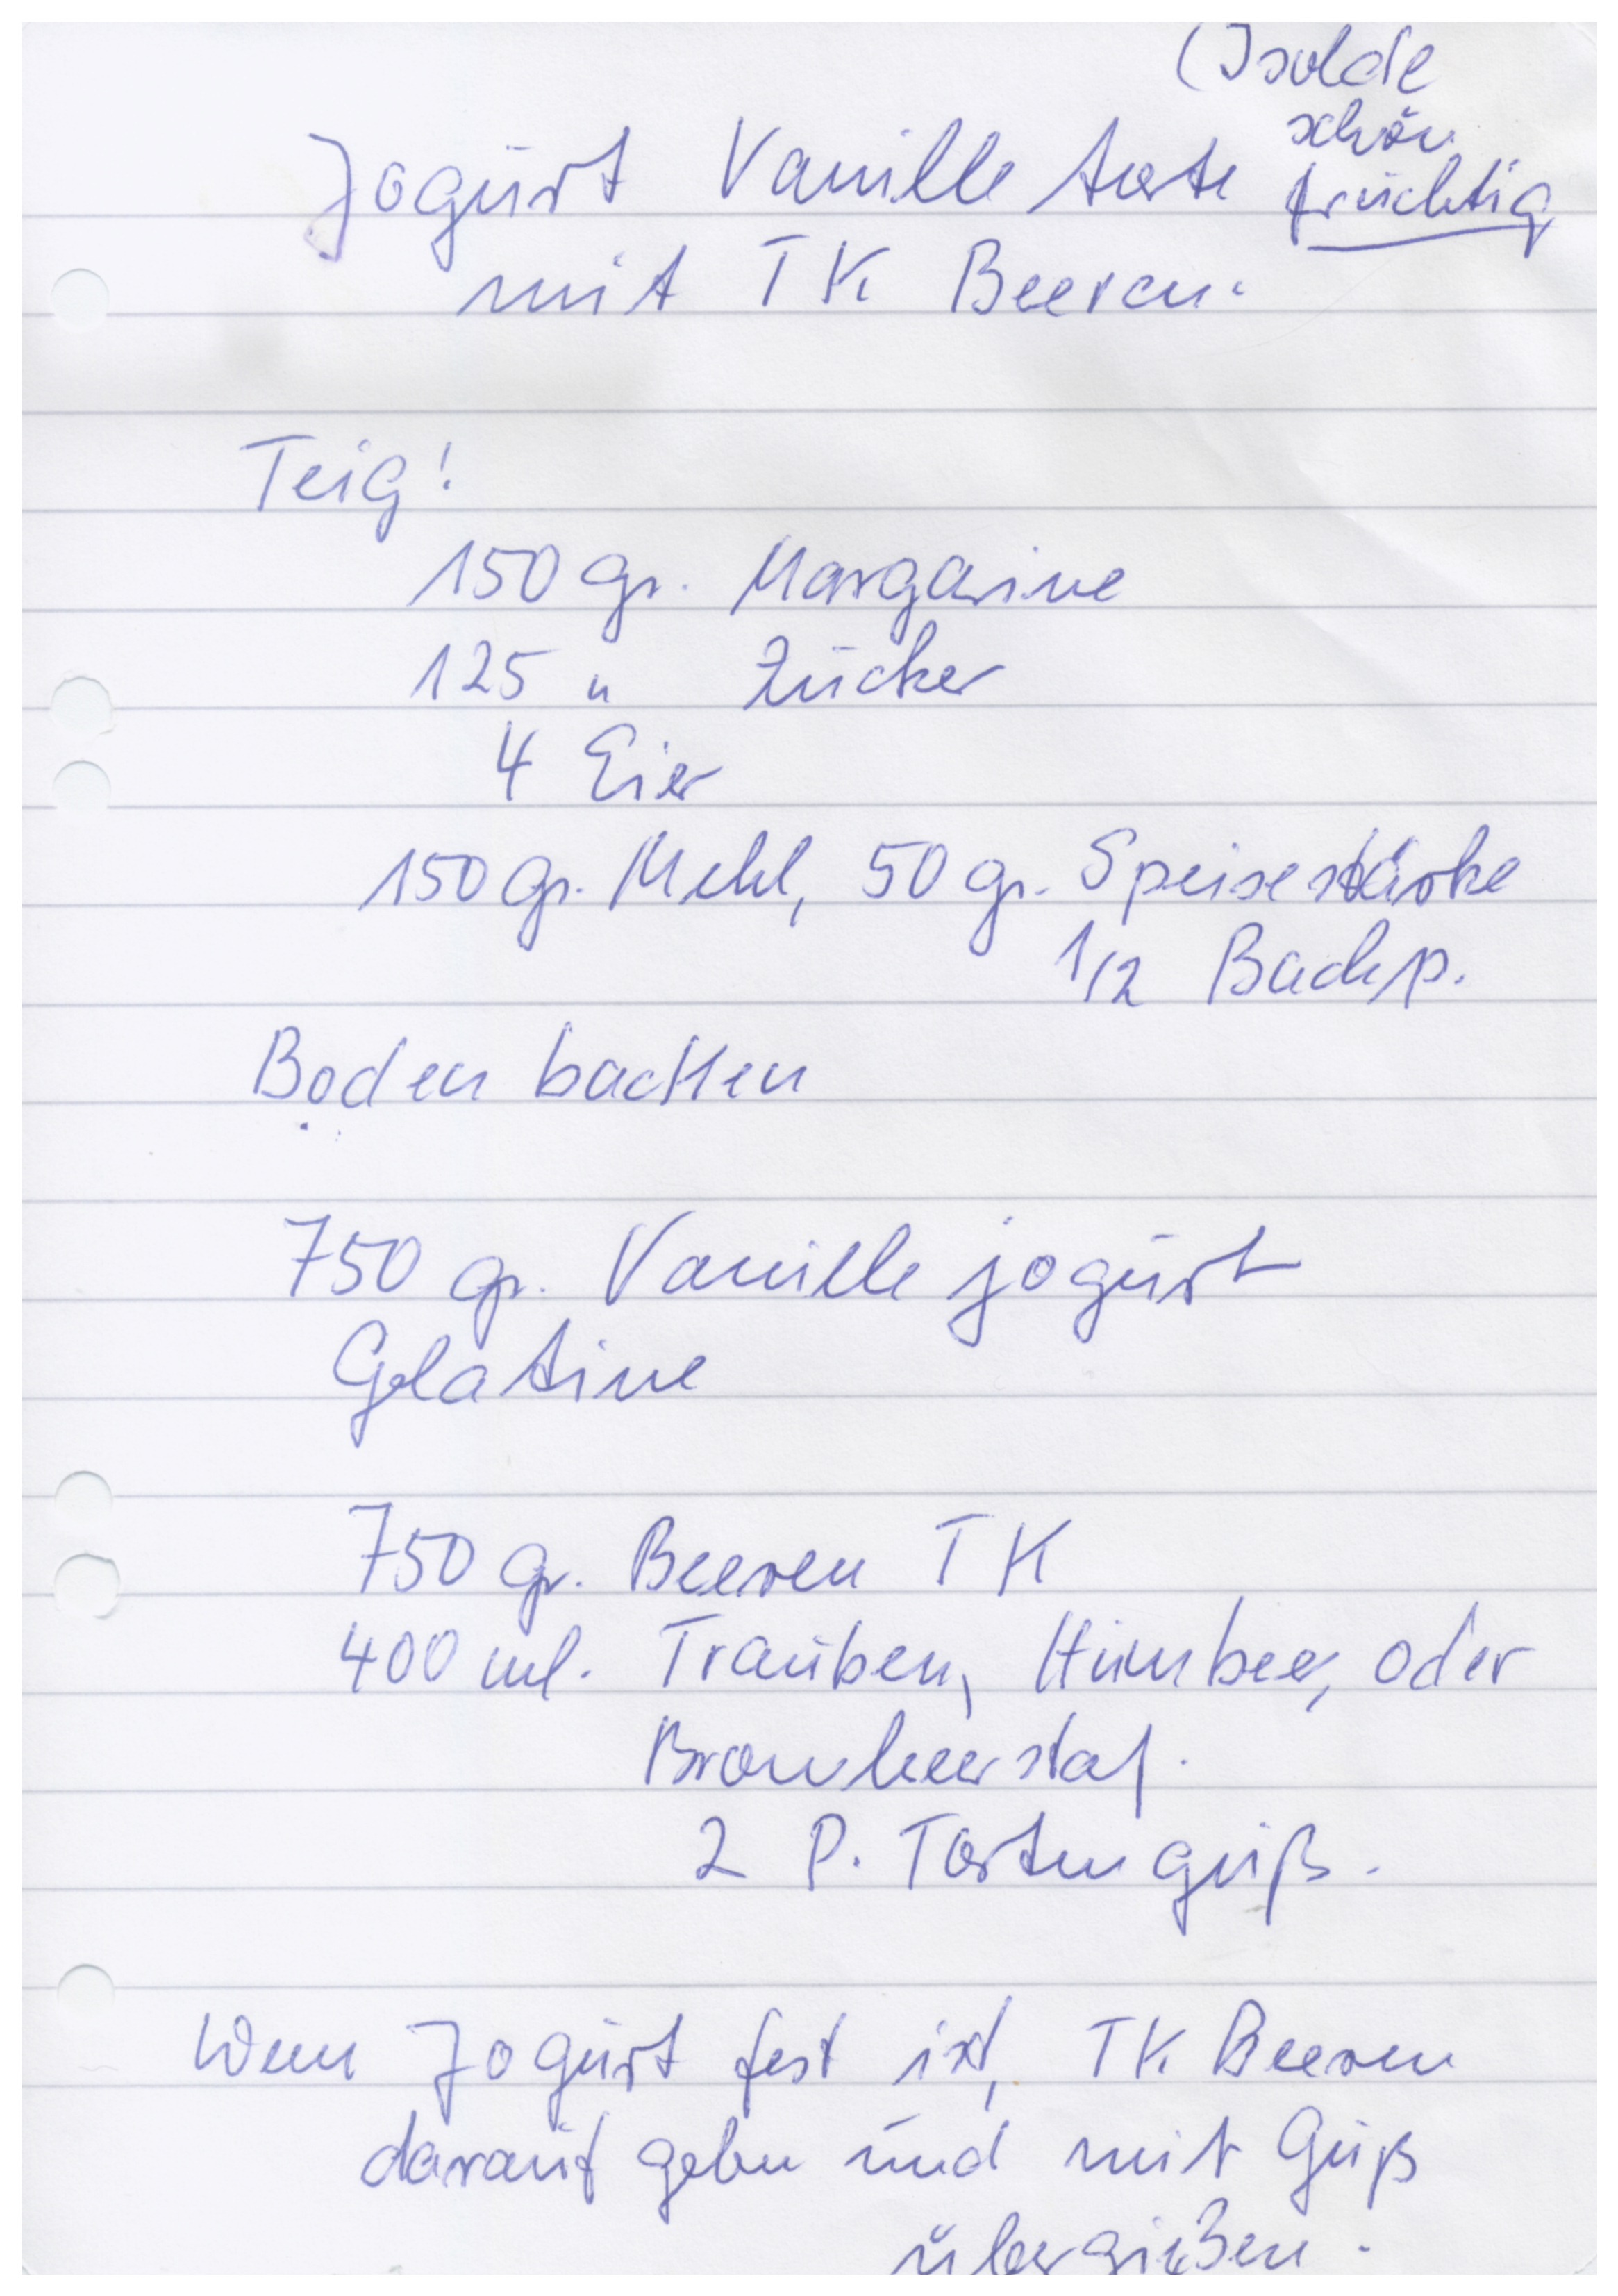 (Isolde
schön
fruchtig
Jogurt Vanille torte
mit TK Beeren.
Teig!
150 gr. Margarine
125 " Zucker
4 Eier
150 gr. Mehl, 50 gr. Speisestärke
1/2 Backp.
Boden backen
750 gr. Vanille jogurt
Gelatine
750 gr. Beeren TK
400 ml. Trauben, Himbeer, oder
Brombeersaf.
2 P. Tortenguß.
Wenn Jogurt fest ist, TK Beeren
darauf geben und mit Guß
übergießen.